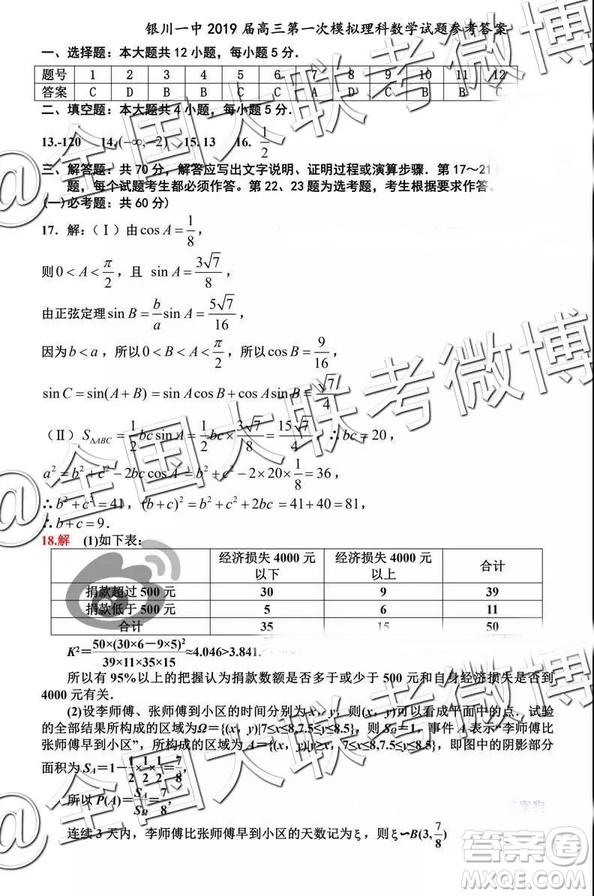 银川一中 2019 届高三第一次模拟理科数学试题参考答案
一、选择题：本大题共 12 小题，每小题 5 分．
题号 1 2 3 4 5 6 7 8 9 10 11 12
答案 C D B B C C A D C
二、填空题：本大题共 4 小题，每小题 5 分．
13.-120 14.(-∞,-2) 15.13 16. 1/2
三、解答题：共 70 分，解答应写出文字说明、证明过程或演算步骤．第 17～21
题，每个试题考生都必须作答。第 22、23 题为选考题，考生根据要求作答。
(一)必考题：共 60 分)
17. 解：（Ⅰ）由 cos A = 1/8，
则 0 < A < π/2，且 sin A = 3√7/8
由正弦定理 sin B = b/a sin A = 5√7/16
因为 b < a，所以 0 < B < π/2，所以 cos B = 9/16，
sin C = sin(A + B) = sin A cos B + cos A sin B = √7/4
（Ⅱ）S△ABC = 1/2 bc sin A = 1/2 bc × 3√7/8 = 15√7/4 ∴ bc = 20，
a² = b² + c² − 2bc cos A = b² + c² − 2×20× 1/8 = 36，
∴ b² + c² = 41，(b + c)² = b² + c² + 2bc = 41 + 40 = 81，
∴ b + c = 9．
18.解 (1)如下表：
经济损失 4000 元以下 经济损失 4000 元以上 合计
捐款超过 500 元 30 9 39
捐款低于 500 元 5 6 11
合计 35 15 50
K²= 50×(30×6−9×5)²/39×11×35×15 ≈4.046>3.841.
所以有 95%以上的把握认为捐款数额是否多于或少于 500 元和自身经济损失是否到
4000 元有关．
(2)设李师傅、张师傅到小区的时间分别为 x，y，则(x，y)可以看成平面中的点．试验
的全部结果所构成的区域为Ω={(x，y)|7≤x≤8,7.5≤y≤8.5}，则 SΩ=1，事件 A 表示“李师傅
比张师傅早到小区”，所构成的区域为 A={(x，y)|y≥x，7≤x≤8,7.5≤y≤8.5}，即图中的阴影部分
面积为 SA=1− 1/2 × 1/2 × 1/2 = 7/8，
所以 P(A)= = 7/8，
连续 3 天内，李师傅比张师傅早到小区的天数记为 ξ，则 ξ∽B(3, 7/8)
@全国大联考微博
@全国大联考微博
答案狗
答案圈
MXQE.COM